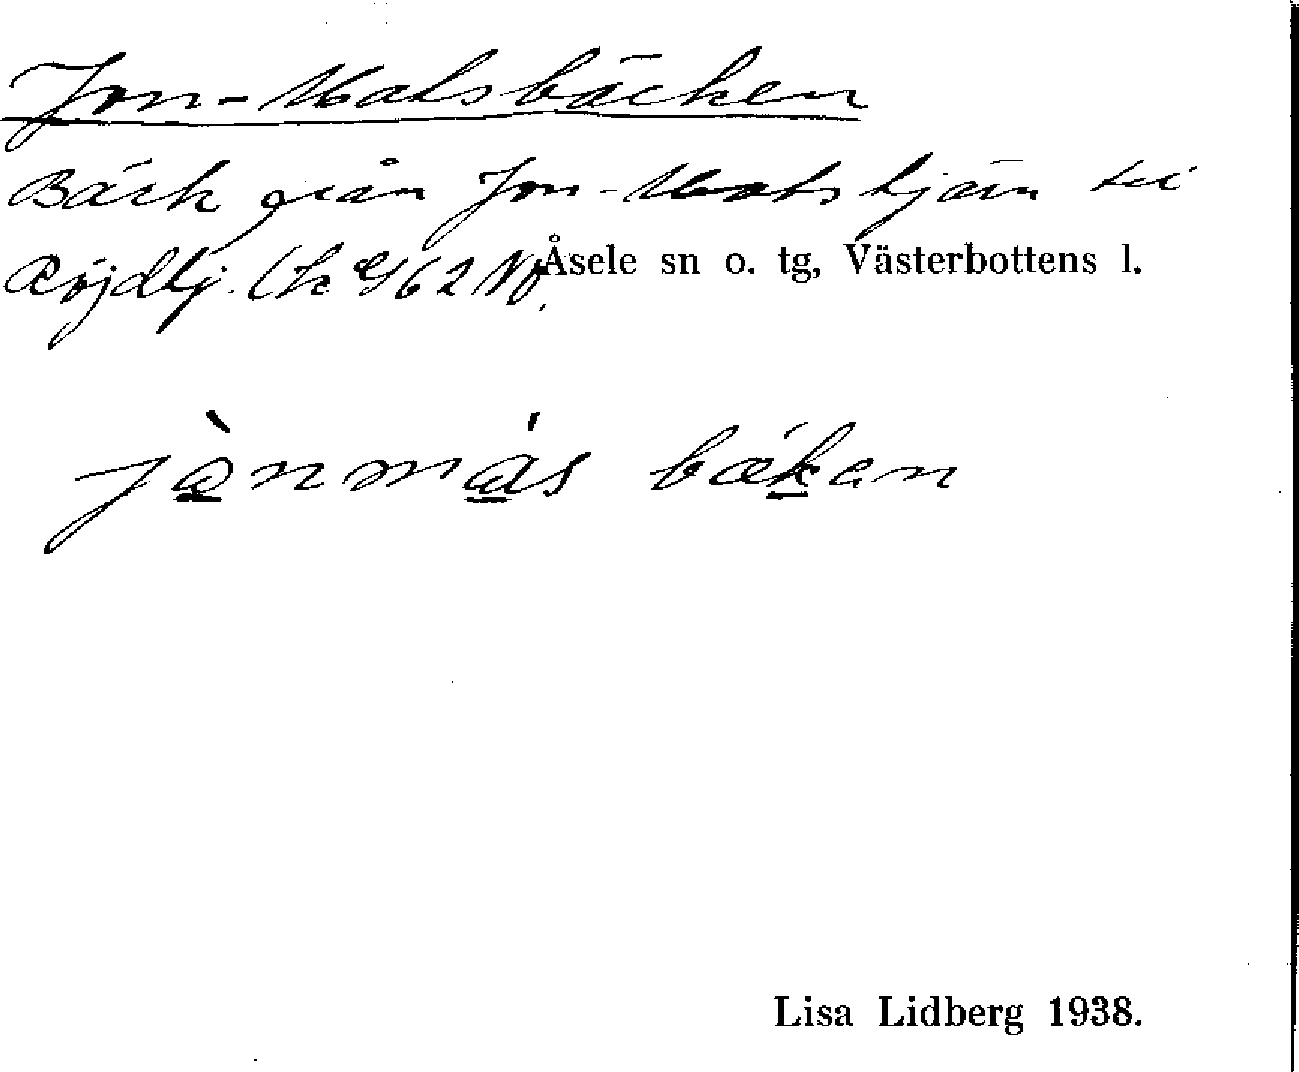 Jon-Matsbäcken
Bäck från Jon-Matstjärn till
Röjdtj. (tr 962 NV. Åsele sn o. tg, Västerbottens l.
jànmás bæken
Lisa Lidberg 1938.